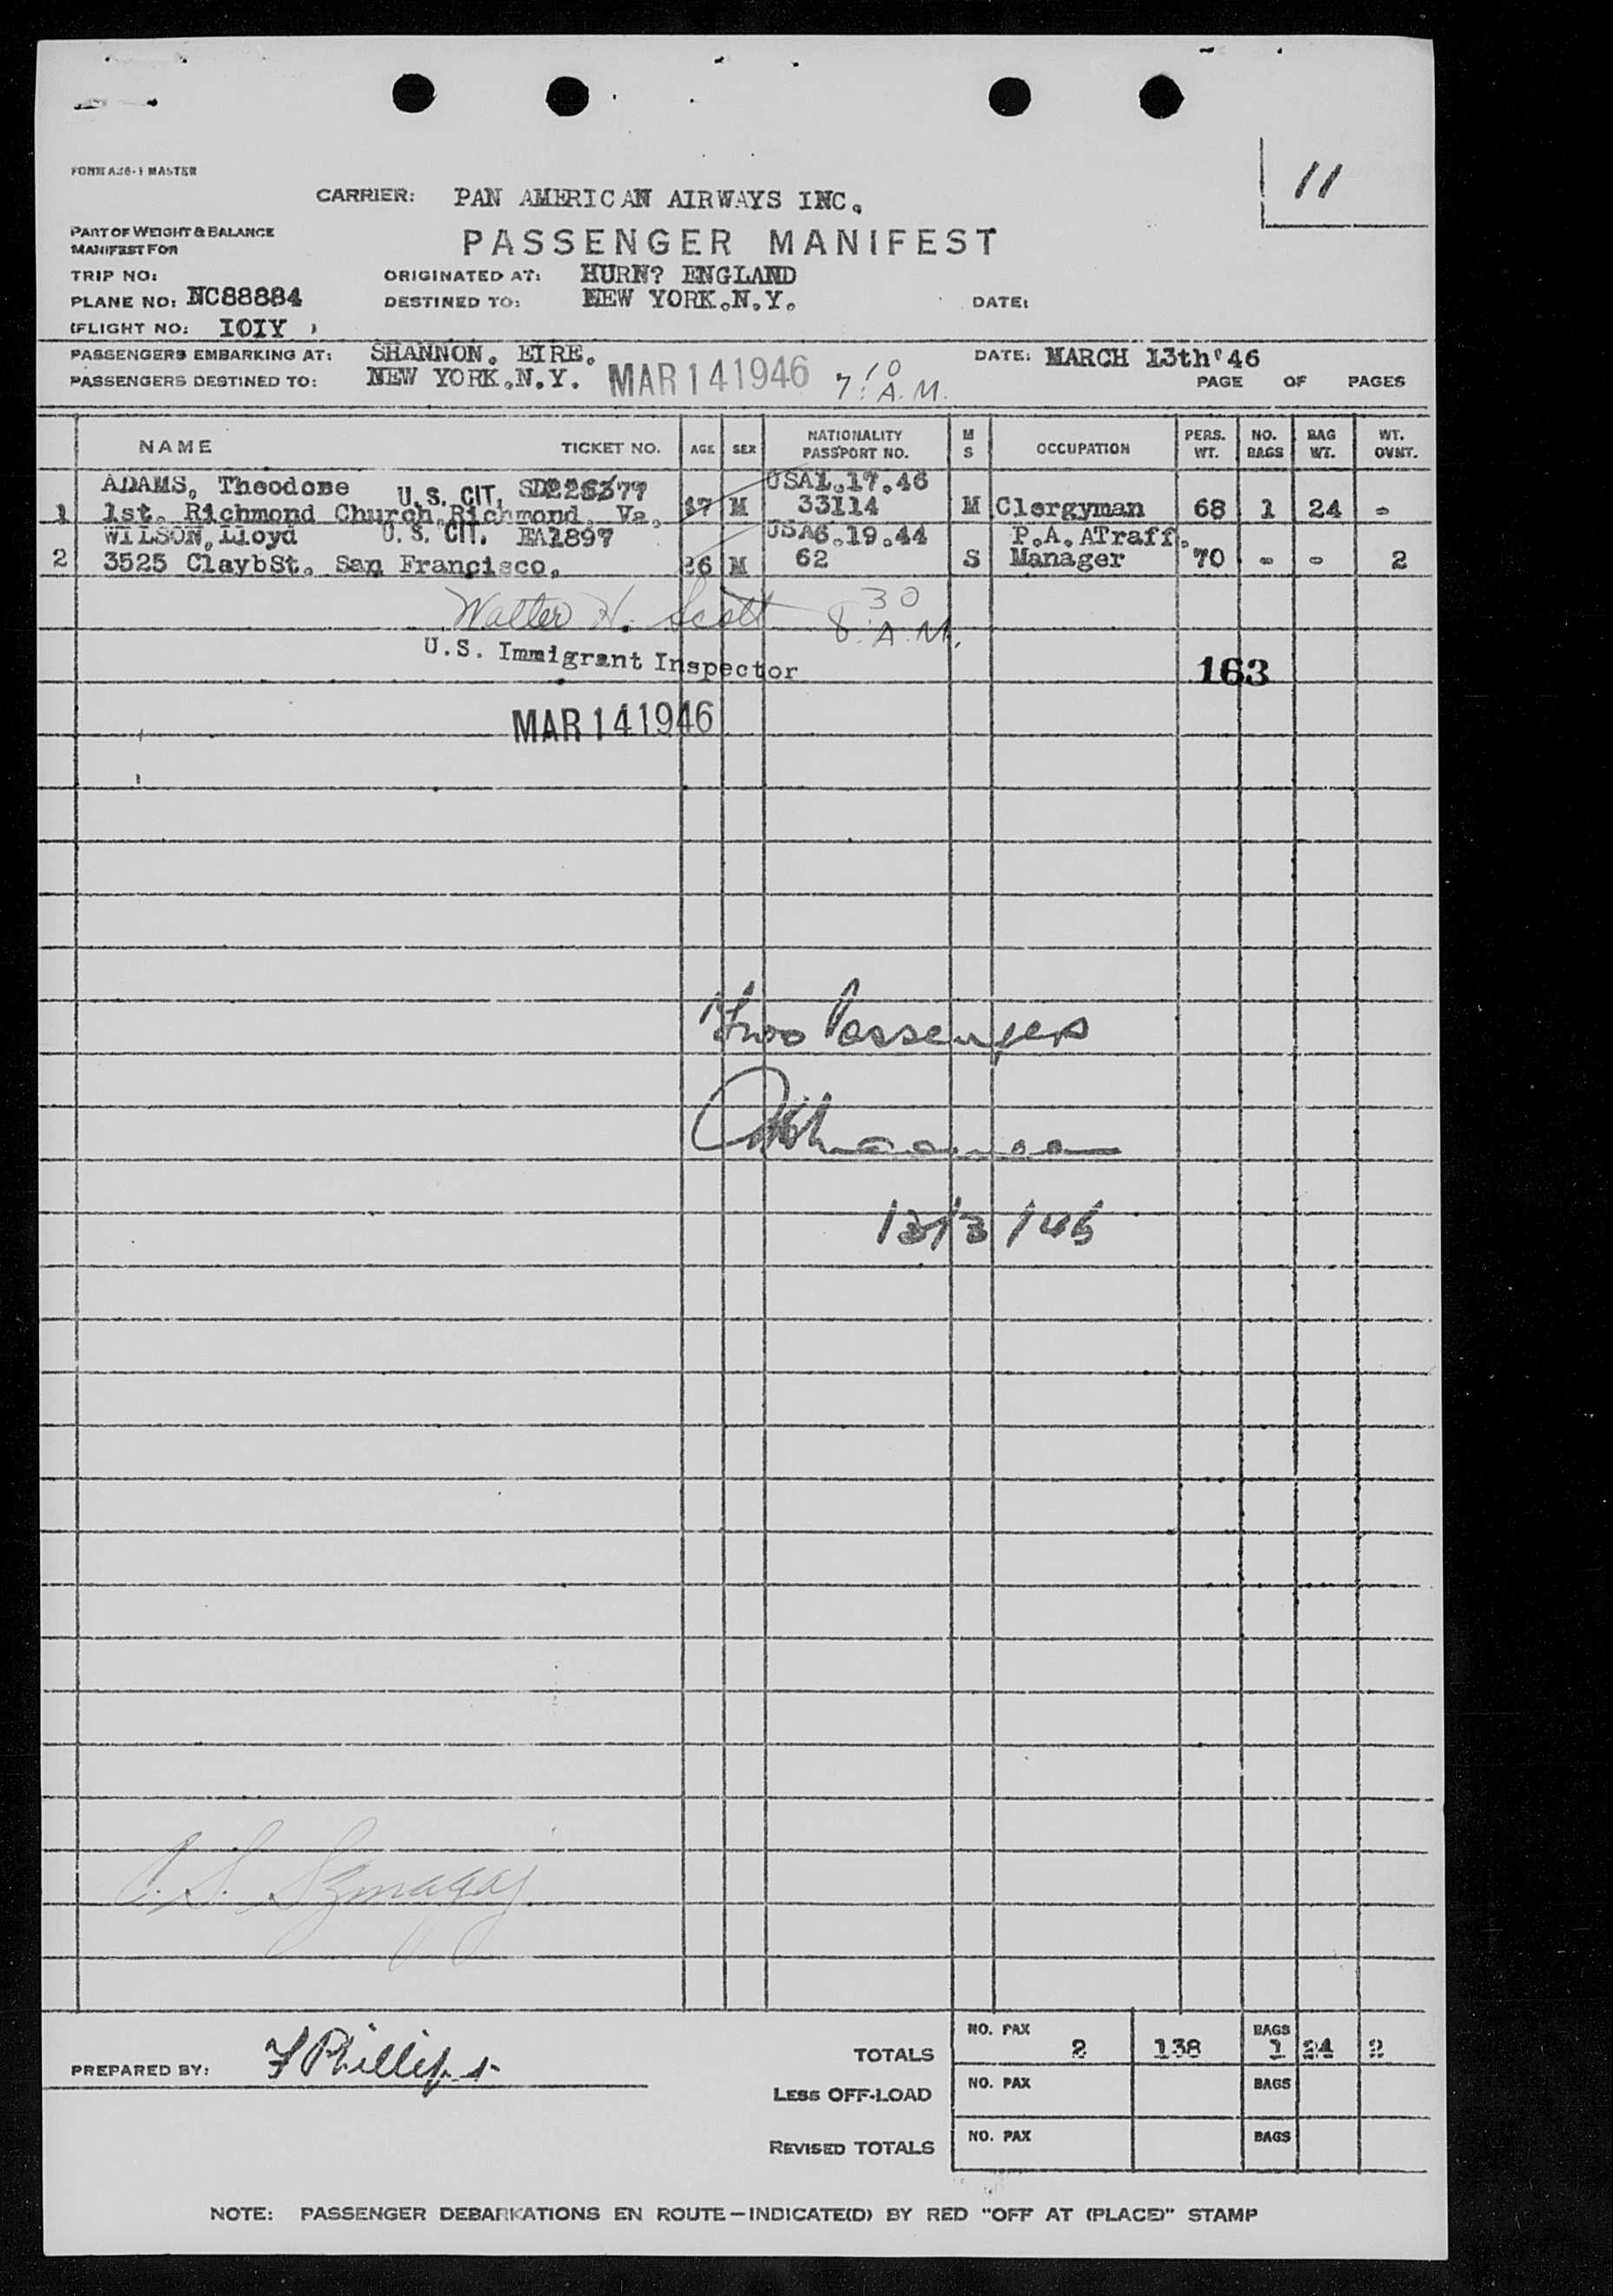 FORM A36-1 MASTER
11
CARRIER: PAN AMERICAN AIRWAYS INC.
PART OF WEIGHT & BALANCE
MANIFEST FOR
PASSENGER MANIFEST
TRIP NO: ORIGINATED AT: HURN? ENGLAND
PLANE NO: NC88884 DESTINED TO: NEW YORK.N.Y. DATE:
(FLIGHT NO: IOIY )
PASSENGERS EMBARKING AT: SHANNON. EIRE. DATE: MARCH 13th'46
PASSENGERS DESTINED TO: NEW YORK.N.Y. MAR 14 1946 7:10 A.M. PAGE OF PAGES
NAME TICKET NO. AGE SEX NATIONALITY PASSPORT NO. M S OCCUPATION PERS. WT. NO. BAGS BAG WT. WT. OVNT.
ADAMS, Theodore U.S. CIT. USA1.17.46
1 1st. Richmond Church,Richmond, Va. 47 M 33114 M Clergyman 68 1 24 -
WILSON,Lloyd U.S. CIT. EA1897 USA6.19.44 P.A.ATraff.
2 3525 ClaybSt. San Francisco, 26 M 62 S Manager 70 - - 2
Walter H. Scott 8:30 A.M.
U.S. Immigrant Inspector
163
MAR 14 1946
Two Passengers
13/3/46
PREPARED BY: F Phillips
TOTALS NO. PAX 2 138 BAGS 1 24 2
LESS OFF-LOAD NO. PAX BAGS
REVISED TOTALS NO. PAX BAGS
NOTE: PASSENGER DEBARKATIONS EN ROUTE—INDICATE(D) BY RED "OFF AT (PLACE)" STAMP